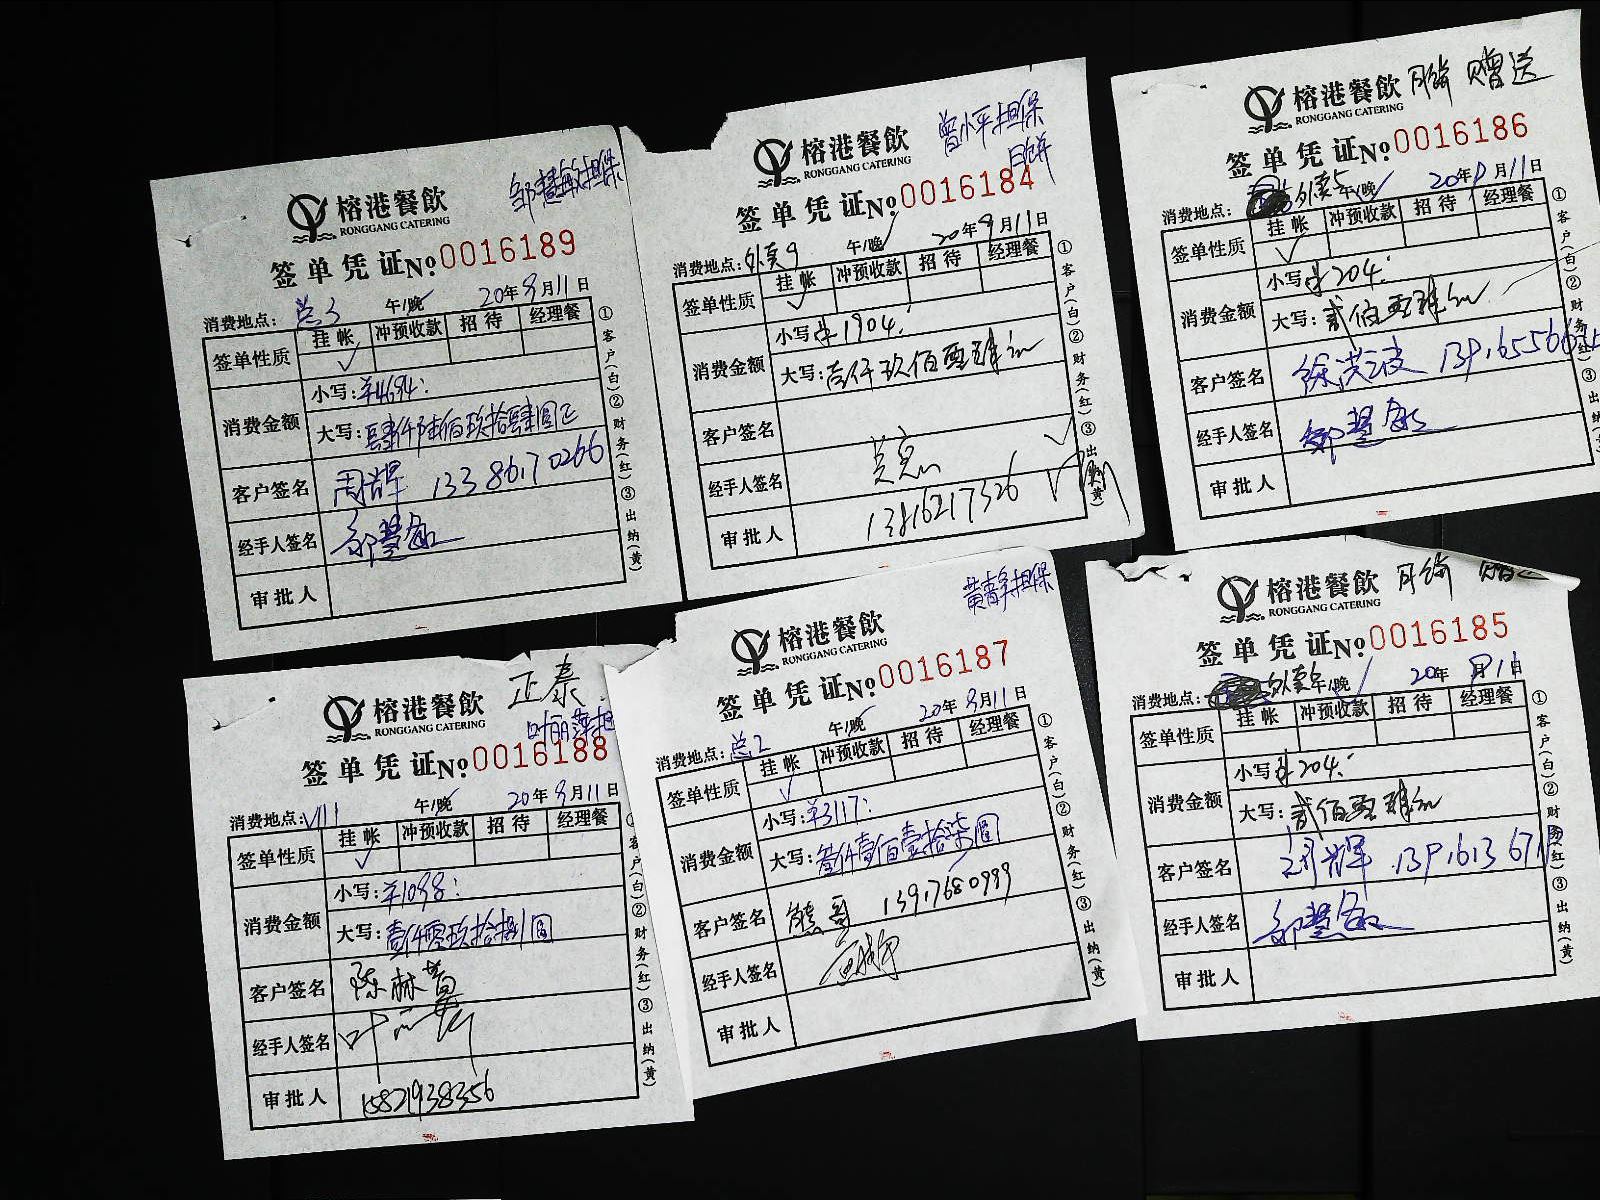 邹慧敏担保
榕港餐飲
RONGGANG CATERING
签单凭证No.0016189
消费地点: 总3 午/晚 20年9月11日
签单性质 挂帐 冲预收款 招待 经理餐
消费金额 小写:¥4694:
大写:肆仟陆佰玖拾肆圆正
客户签名 周辉 13386170266
经手人签名 邹慧敏
审批人
①客户(白)②财务(红)③出纳(黄)
曾小平担保
月饼
榕港餐飲
RONGGANG CATERING
签单凭证No.0016184
消费地点:外卖9 午/晚 20年9月11日
签单性质 挂帐 冲预收款 招待 经理餐
消费金额 小写:¥1904.
大写:壹仟玖佰零肆元
客户签名
经手人签名
审批人 13816217326
①客户(白)②财务(红)③出纳(黄)
月饼 赠送
榕港餐飲
RONGGANG CATERING
签单凭证No.0016186
消费地点: 外卖5 午/晚 20年9月11日
签单性质 挂帐 冲预收款 招待 经理餐
消费金额 小写:¥204.
大写:贰佰零肆元
客户签名 徐洪波
经手人签名 邹慧敏
审批人
①客户(白)②财务(红)③出纳
正泰
叶丽萍担
榕港餐飲
RONGGANG CATERING
签单凭证No.0016188
消费地点:V11 午/晚 20年9月11日
签单性质 挂帐 冲预收款 招待 经理餐
消费金额 小写:¥1098:
大写:壹仟零玖拾捌圆
客户签名 陈林
经手人签名 叶
审批人 15821938356
客户(白)②财务(红)③出纳(黄)
黄青云担保
榕港餐飲
RONGGANG CATERING
签单凭证No.0016187
消费地点: 总2 午/晚 20年9月11日
签单性质 挂帐 冲预收款 招待 经理餐
消费金额 小写:¥3117:
大写:叁仟壹佰壹拾柒圆
客户签名 熊哥 13917680999
经手人签名
审批人
①客户(白)②财务(红)③出纳(黄)
月饼
榕港餐飲
RONGGANG CATERING
签单凭证No.0016185
消费地点: 外卖6 午/晚 20年 月11日
签单性质 挂帐 冲预收款 招待 经理餐
消费金额 小写:¥204.
大写:贰佰零肆元
客户签名 辉
经手人签名 邹慧敏
审批人
①客户(白)②财务(红)③出纳(黄)